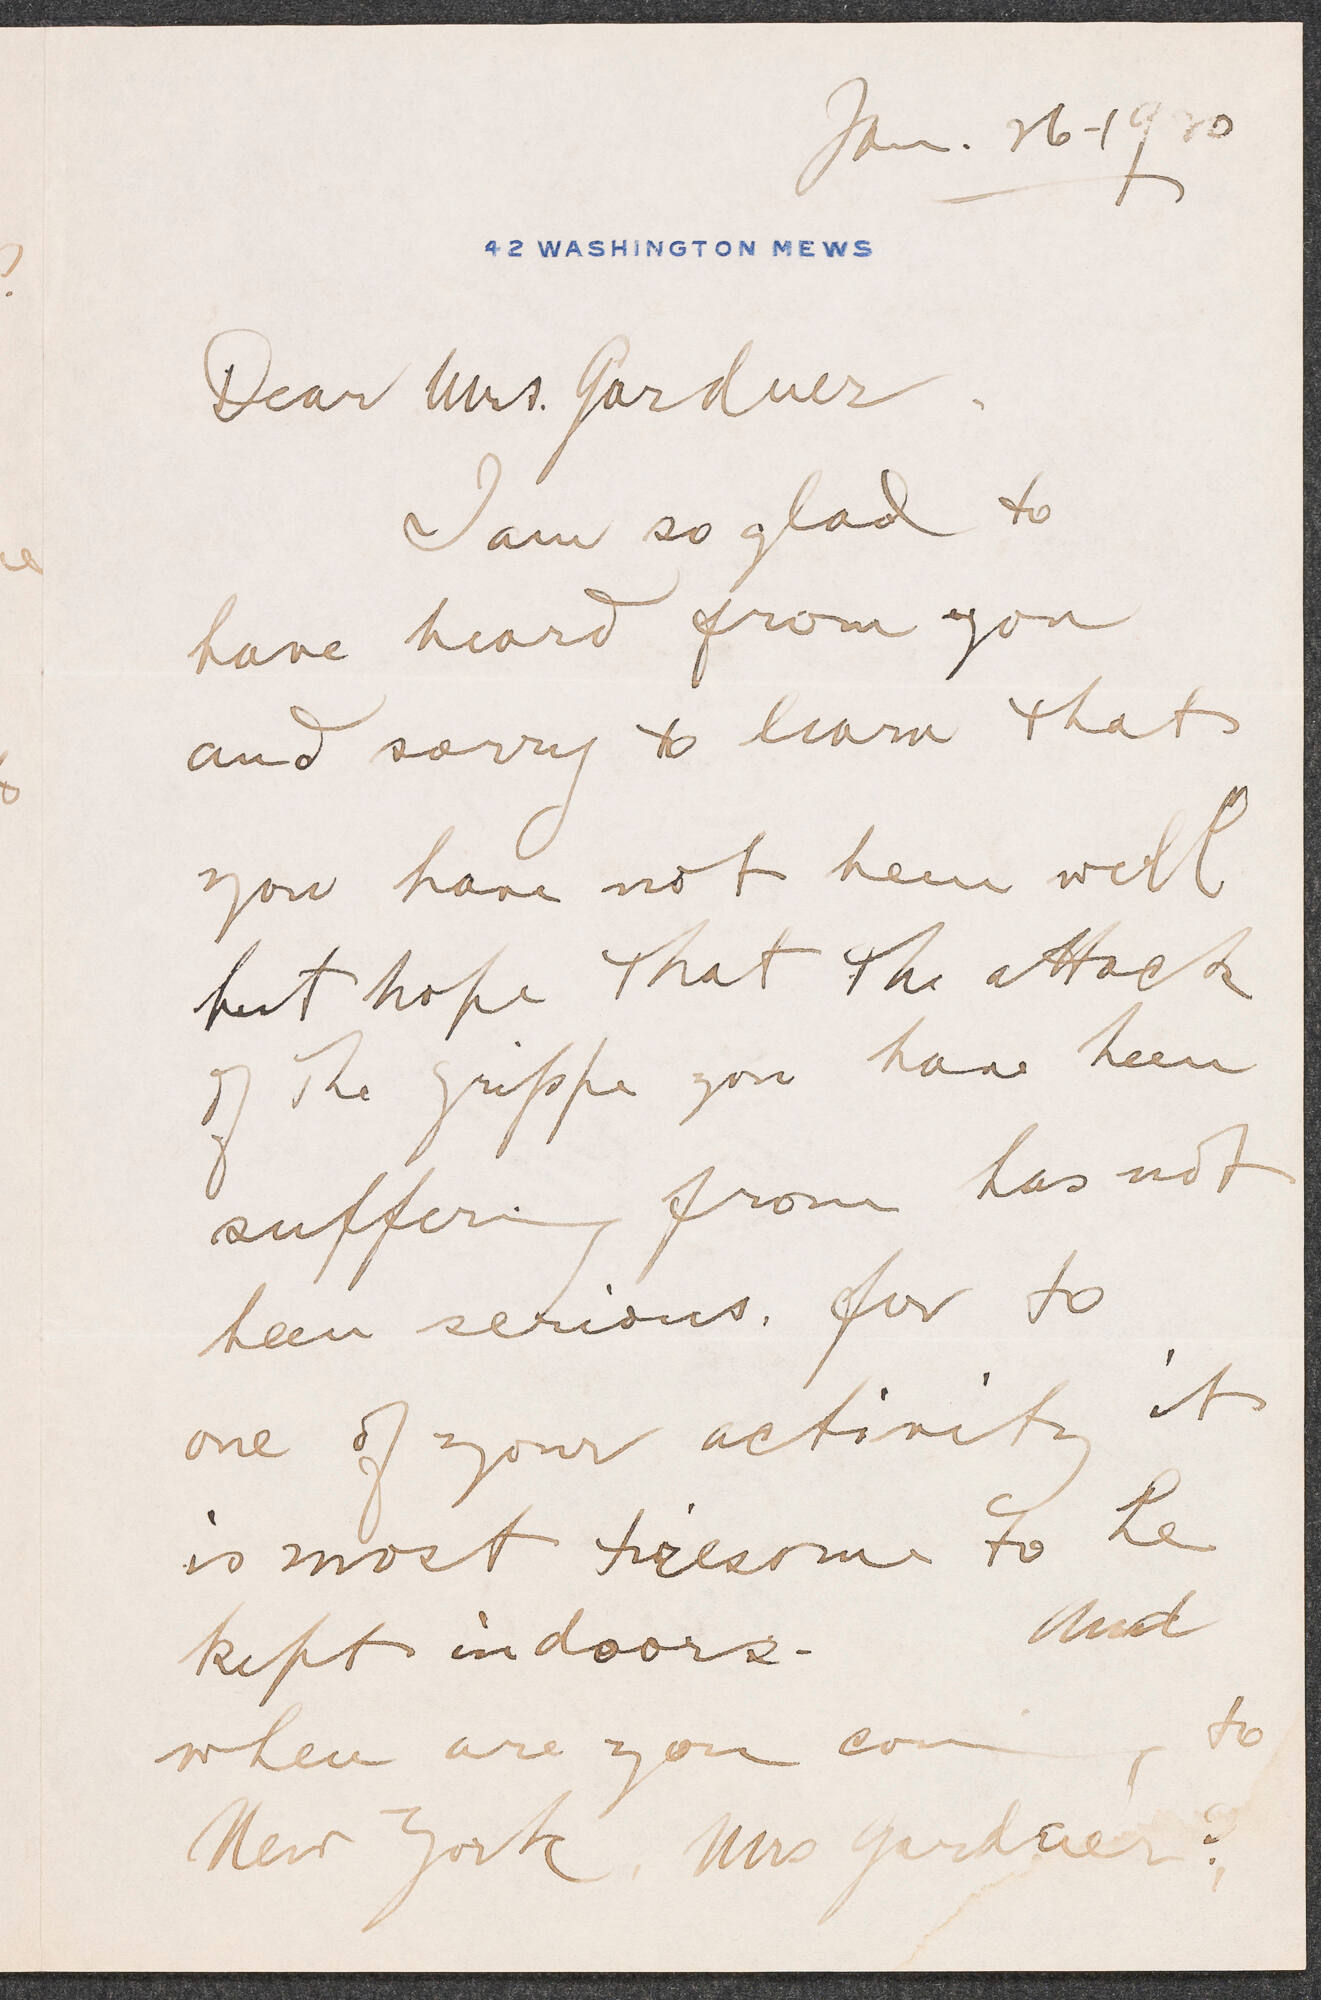 Jan. 26-1920
42 WASHINGTON MEWS
Dear Mrs. Gardner.
I am so glad to
have heard from you
and sorry to learn that
you have not been well
but hope that the attack
of the grippe you have been
suffering from has not
been serious. for to
one of your activity it
is most tiresome to be
kept indoors- And
when are you coming to
New York, Mrs Gardner?